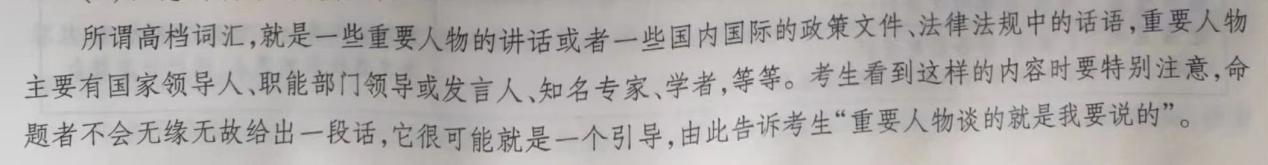 所谓高档词汇,就是一些重要人物的讲话或者一些国内国际的政策文件、法律法规中的话语,重要人物
主要有国家领导人、职能部门领导或发言人、知名专家、学者,等等。考生看到这样的内容时要特别注意,命
题者不会无缘无故给出一段话,它很可能就是一个引导,由此告诉考生“重要人物谈的就是我要说的”。